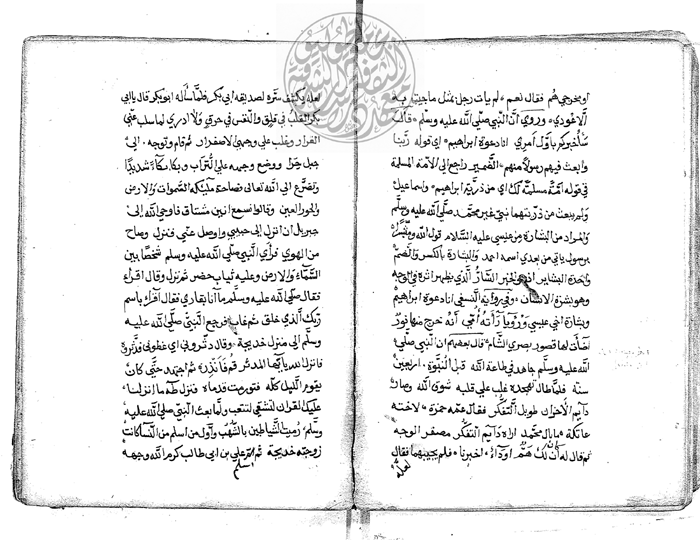 او مخرجي هم فقال نعم لم يات رجل بمثل ما جيت به
الا عودي وروي ان النبي صلى الله عليه وسلم قال
سأخبركم باول امري انا دعوة ابراهيم اي قوله ربنا
وابعث فيهم رسولا منهم الضمير راجع الى الامة المسلمة
في قوله امة مسلمة لك اي من ذرية ابراهيم واسماعيل
ولم يبعث من ذريتهما نبي غير محمد صلى الله عليه وسلم
والمراد من البشارة من عيسى عليه السلام قول الله ومبشرا
برسول ياتي من بعدي اسمه احمد والبشارة بالكسر والضم
واحدة البشاير الخبر السار الذي يظهر اثره في الوجه
وهو بشرة الانسان وفي رواية النسفي انا دعوة ابراهيم
وبشارة اخي عيسى ورؤيا رأته امي انه خرج منها نور
اضاءت لها قصور بصرى الشام قال بعضهم ان النبي صلى
الله عليه وسلم جاهد في طاعة الله قبل النبوة اربعين
سنة فلما طال تهجده غلب على قلبه شوق الله وصار
دايم الاحزان طويل التفكر فقال عمه حمزة لاخته
عاتكة ما بال محمد اراه دايم التفكر مصفر الوجه
ثم قال له ان لك هم اوداء اخبرنا فلم يجيبهما فقال
لعله
لعله يكشف سره لصديقه ابي بكر فلما سأله ابو بكر قال يا ابي
بكر القلب في قلق والنفس في حرق ولا ادري لما سلب عني
القرار وغلب على وجهي الاصفرار ثم قام وتوجه الى
جبل حرا ووضع وجهه على التراب وبكا بكاء شديدا
وتضرع الى الله تعالى فصاحت مليكة السموات والارض
والحور العين وقالوا نسمع انين مشتاق فاوحى الله الى
جبريل ان انزل الى حبيبي واوصل عني فنزل وصاح
من الهوى فرأى النبي صلى الله عليه وسلم شخصا بين
السماء والارض وعليه ثياب خضر ثم نزل وقال اقراء
فقال صلى الله عليه وسلم ما انا بقاري فقال اقراء باسم
ربك الذي خلق ثم غاب فرجع النبي صلى الله عليه
وسلم الى منزل خديجة وقال دثروني اي غطوني فدثرته
فانزل الله يا ايها المدثر قم فانذر ثم اجتهد حتى كان
يقوم الليل كله فتورمت قدماه فنزل طه ما انزلنا
عليك القران لتشقى لتتعب ولما بعث النبي صلى الله عليه
وسلم رميت الشياطين بالشهب واول من اسلم من النساء كانت
زوجته خديجة ثم اسلم علي بن ابي طالب كرم الله وجهه